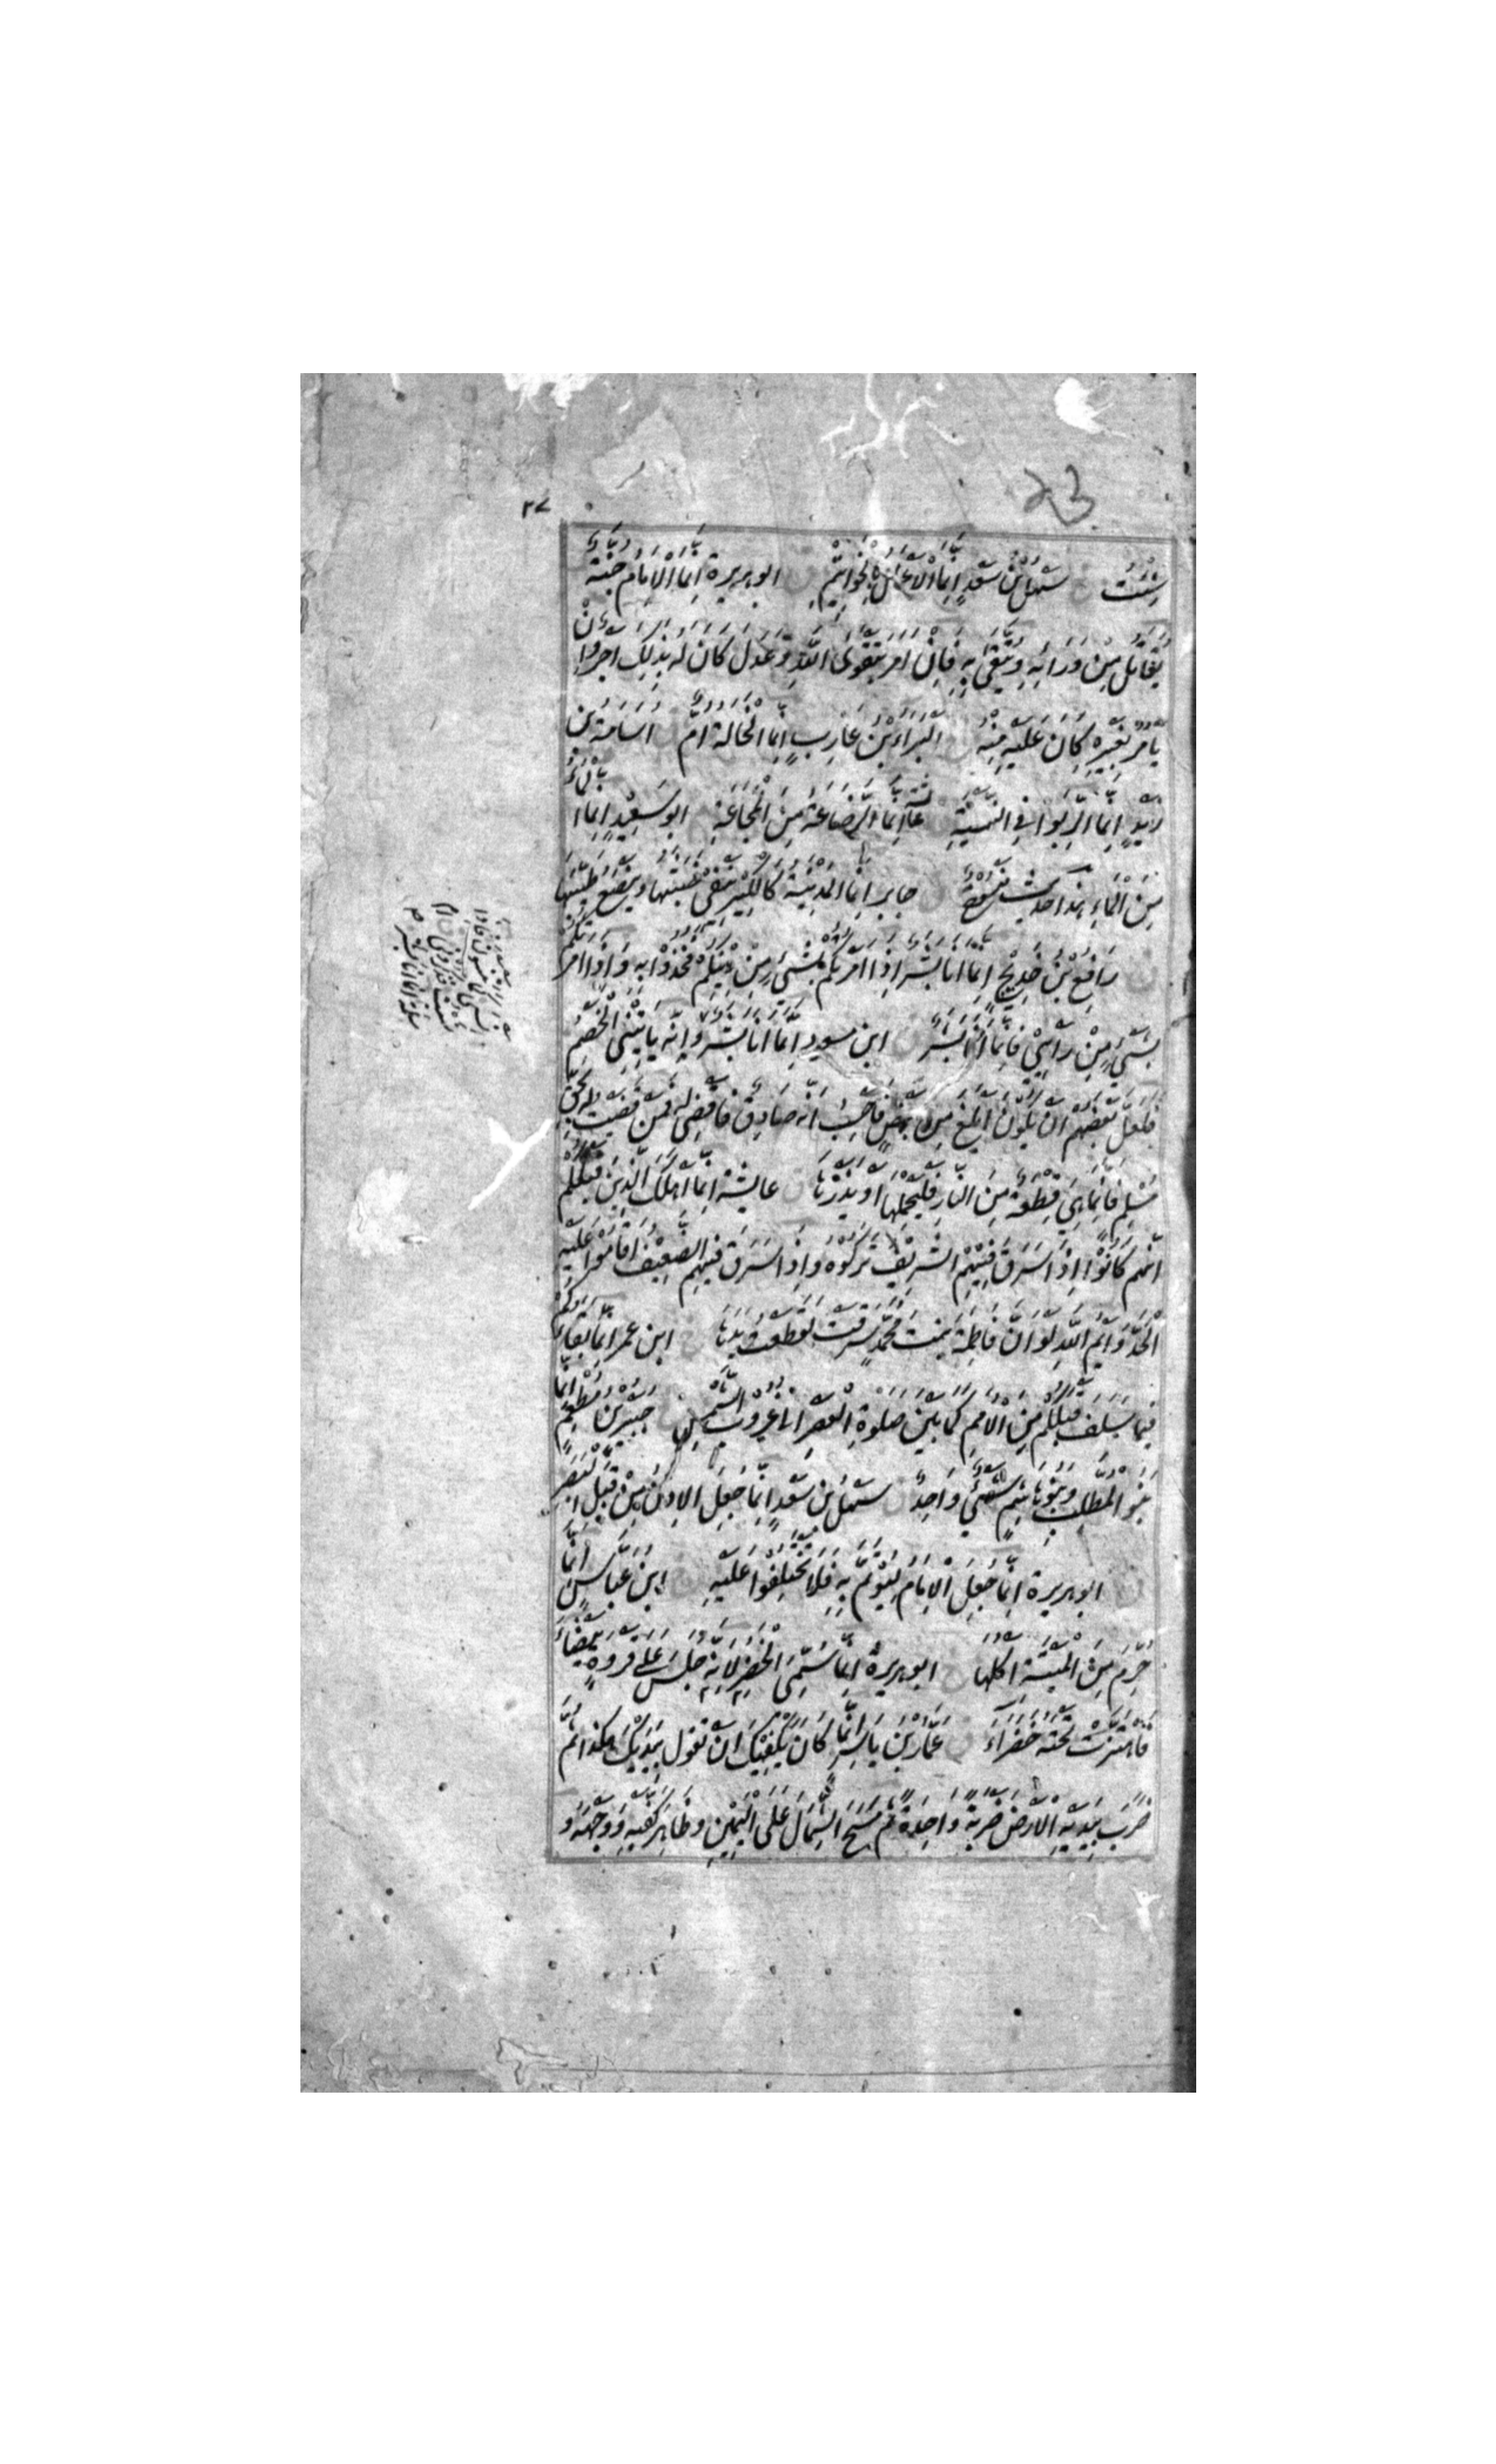 ٣٧
شِئْتَ سَهْلُ بْنُ سَعْدٍ اِنَّمَا الْاَعْمَالُ بِالْخَوَاتِيْمِ ابوہریرة اِنَّمَا الْاِمَامُ جُنَّةٌ
يُقَاتَلُ مِنْ وَرَائِهِ وَيُتَّقٰى بِهِ فَاِنْ اَمَرَ بِتَقْوَى اللّٰهِ وَعَدَلَ كَانَ لَهُ بِذٰلِكَ اَجْرٌ وَاِنْ
يَأْمُرْ بِغَيْرِهِ كَانَ عَلَيْهِ مِنْهُ الْبَرَاءُ بْنُ عَازِبٍ اِنَّمَا الْخَالَةُ اُمٌّ اُسَامَةُ بْنُ
زَيْدٍ اِنَّمَا الرِّبٰوا فِي النَّسِيْئَةِ عَائِشَة اِنَّمَا الرَّضَاعَةُ مِنَ الْمَجَاعَةِ ابو سَعِيْدٍ اِنَّمَا الْمَاءُ
مِنَ الْمَاءِ هذا حديث مَنْسُوْخٌ جابر اِنَّمَا الْمَدِيْنَةُ كَالْكِيْرِ تَنْفِيْ خَبَثَهَا وَيَنْصَعُ طَيِّبُهَا
رَافِعُ بْنُ خَدِيْجٍ اِنَّمَا اَنَا بَشَرٌ اِذَا اَمَرْتُكُمْ بِشَيْءٍ مِنْ دِيْنِكُمْ فَخُذُوْا بِهِ وَاِذَا اَمَرْتُكُمْ
بِشَيْءٍ مِنْ رَأْيِيْ فَاِنَّمَا اَنَا بَشَرٌ ابن مسعود اِنَّمَا اَنَا بَشَرٌ وَاِنَّهُ يَأْتِيْنِي الْخَصْمُ
فَلَعَلَّ بَعْضَهُمْ اَنْ يَكُوْنَ اَبْلَغَ مِنْ بَعْضٍ فَاَحْسِبُ اَنَّهُ صَادِقٌ فَاَقْضِيْ لَهُ فَمَنْ قَضَيْتُ لَهُ بِحَقِّ
مُسْلِمٍ فَاِنَّمَا هِيَ قِطْعَةٌ مِنَ النَّارِ فَلْيَحْمِلْهَا اَوْ يَذَرْهَا عائِشَة اِنَّمَا اَهْلَكَ الَّذِيْنَ قَبْلَكُمْ
اَنَّهُمْ كَانُوْا اِذَا سَرَقَ فِيْهِمُ الشَّرِيْفُ تَرَكُوْهُ وَاِذَا سَرَقَ فِيْهِمُ الضَّعِيْفُ اَقَامُوْا عَلَيْهِ
الْحَدَّ وَاَيْمُ اللّٰهِ لَوْ اَنَّ فَاطِمَةَ بِنْتَ مُحَمَّدٍ سَرَقَتْ لَقَطَعْتُ يَدَهَا ابن عمر اِنَّمَا بَقَاؤُكُمْ
فِيْمَا سَلَفَ قَبْلَكُمْ مِنَ الْاُمَمِ كَمَا بَيْنَ صَلٰوةِ الْعَصْرِ اِلٰى غُرُوْبِ الشَّمْسِ جُبَيْرُ بْنُ مُطْعِمٍ اِنَّمَا
بَنُو الْمُطَّلِبِ وَبَنُوْ هَاشِمٍ شَيْءٌ وَاحِدٌ سَهْلُ بْنُ سَعْدٍ اِنَّمَا جُعِلَ الْاِذْنُ مِنْ قِبَلِ الْبَصَرِ
ابوہریرة اِنَّمَا جُعِلَ الْاِمَامُ لِيُؤْتَمَّ بِهِ فَلَا تَخْتَلِفُوْا عَلَيْهِ ابْنُ عَبَّاسٍ اِنَّمَا
حُرِّمَ مِنَ الْمَيْتَةِ اَكْلُهَا ابوہریرة اِنَّمَا سُمِّيَ الْخَضِرُ لِاَنَّهُ جَلَسَ عَلٰى فَرْوَةٍ بَيْضَاءَ
فَاهْتَزَّتْ تَحْتَهُ خَضْرَاءَ عَمَّارُ بْنُ يَاسِرٍ اِنَّمَا كَانَ يَكْفِيْكَ اَنْ تَقُوْلَ بِيَدَيْكَ هٰكَذَا ثُمَّ
ضَرَبَ بِيَدَيْهِ الْاَرْضَ ضَرْبَةً وَاحِدَةً ثُمَّ مَسَحَ الشِّمَالَ عَلَى الْيَمِيْنِ وَظَاهِرَ كَفَّيْهِ وَوَجْهَهُ وَ